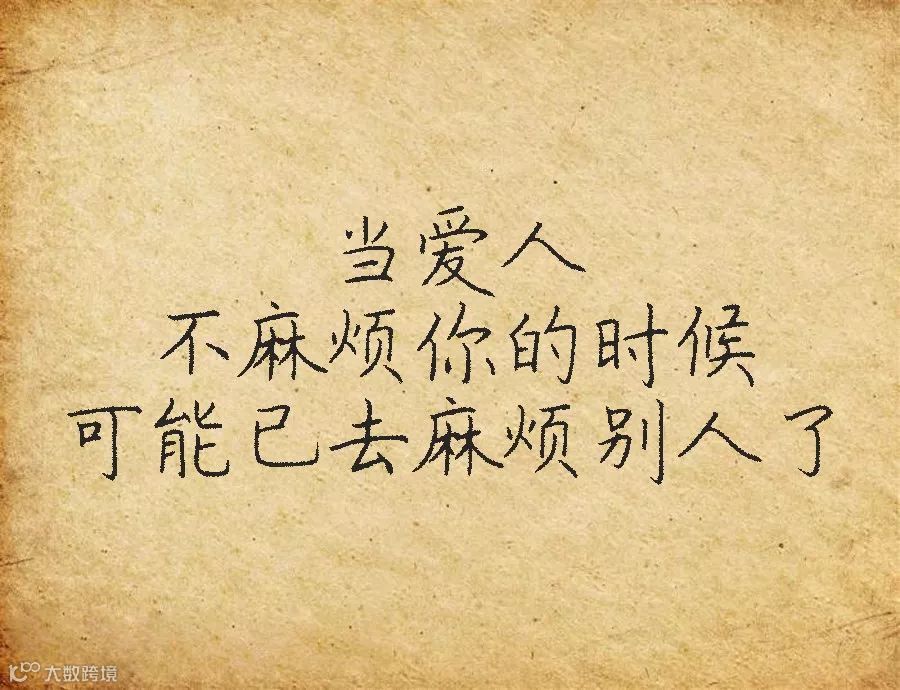 当爱人
不麻烦你的时候
可能已去麻烦别人了
大数跨境